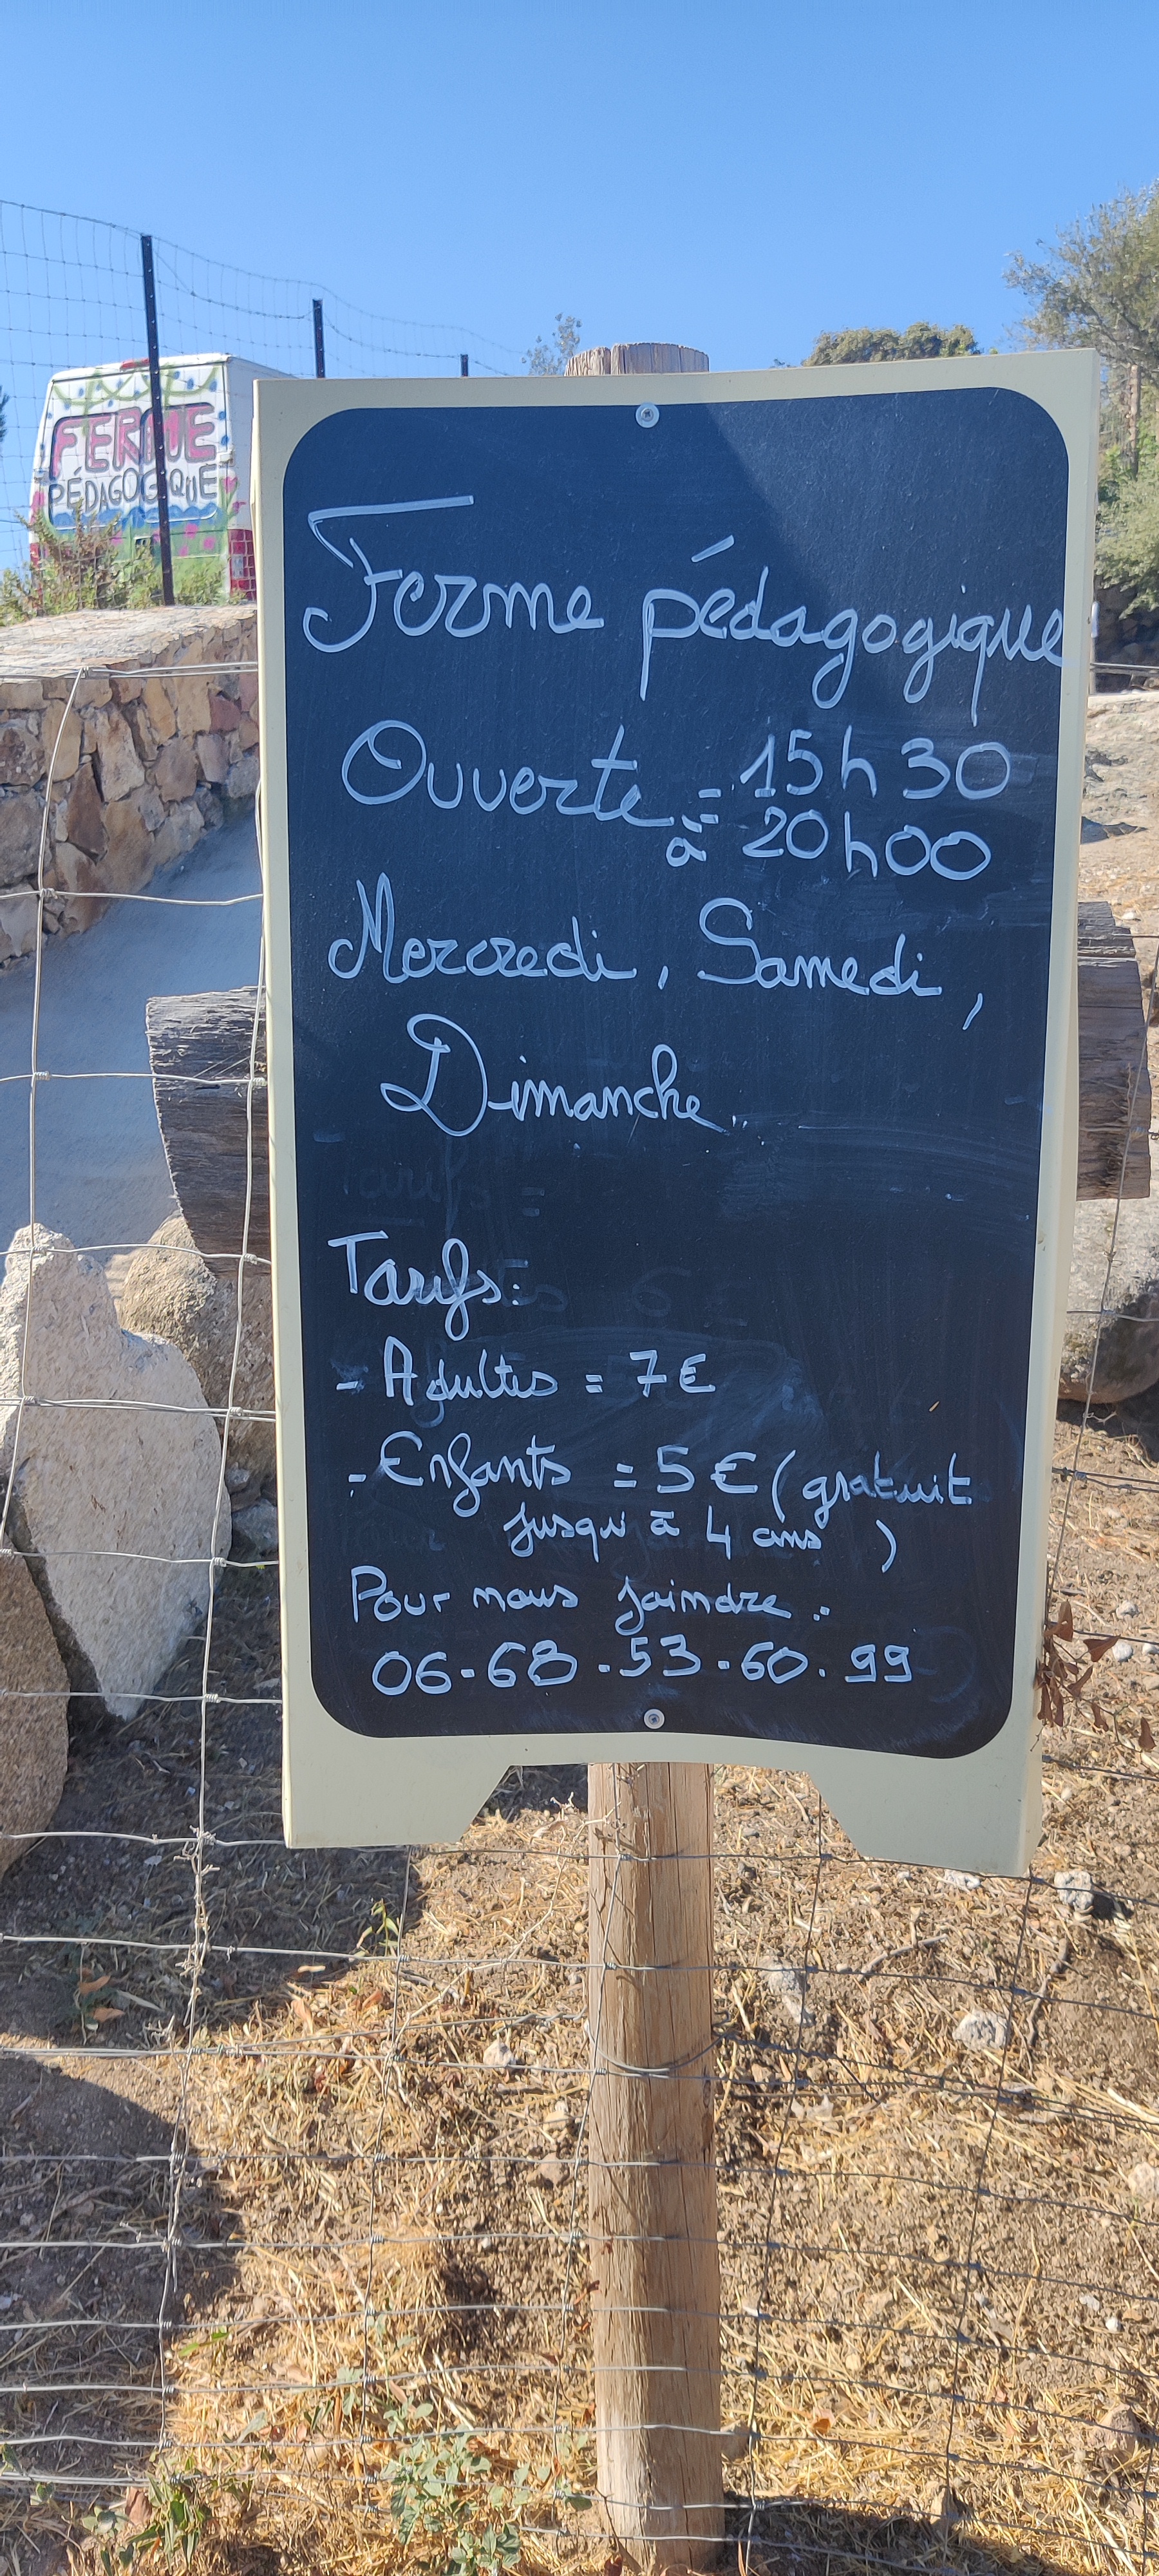 FERME
PÉDAGOGIQUE
Ferme pédagogique
Ouverte = 15h30
à = 20h00
Mercredi, Samedi,
Dimanche.
Tarifs:
- Adultes = 7€
- Enfants = 5€ (gratuit
jusqu'à 4 ans )
Pour nous joindre :
06.68.53.60.99